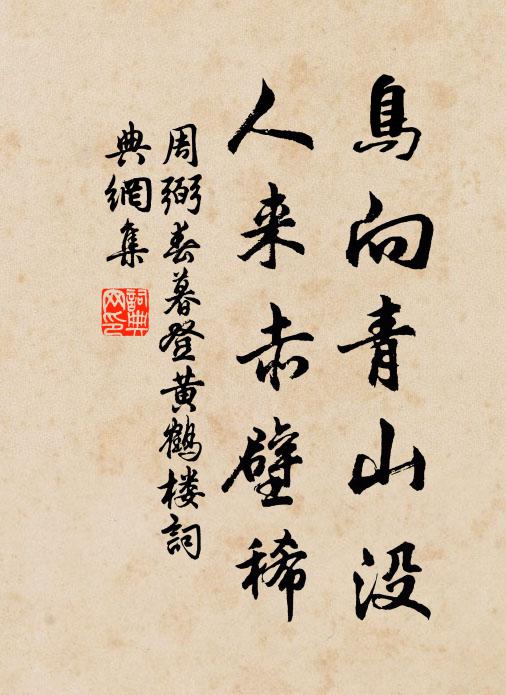 鳥向青山没
人来赤壁稀
周弼春暮登黄鶴楼詞
典網集
詞典
网印